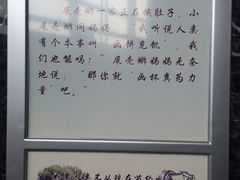 屎壳螂一家正在饿肚子，小
屎壳螂问妈妈："我听说人类
有个本事叫'画饼充饥'，我
们也能吗？"屎壳螂妈妈无奈
地说："那你就'画杯真为力
量'吧。"